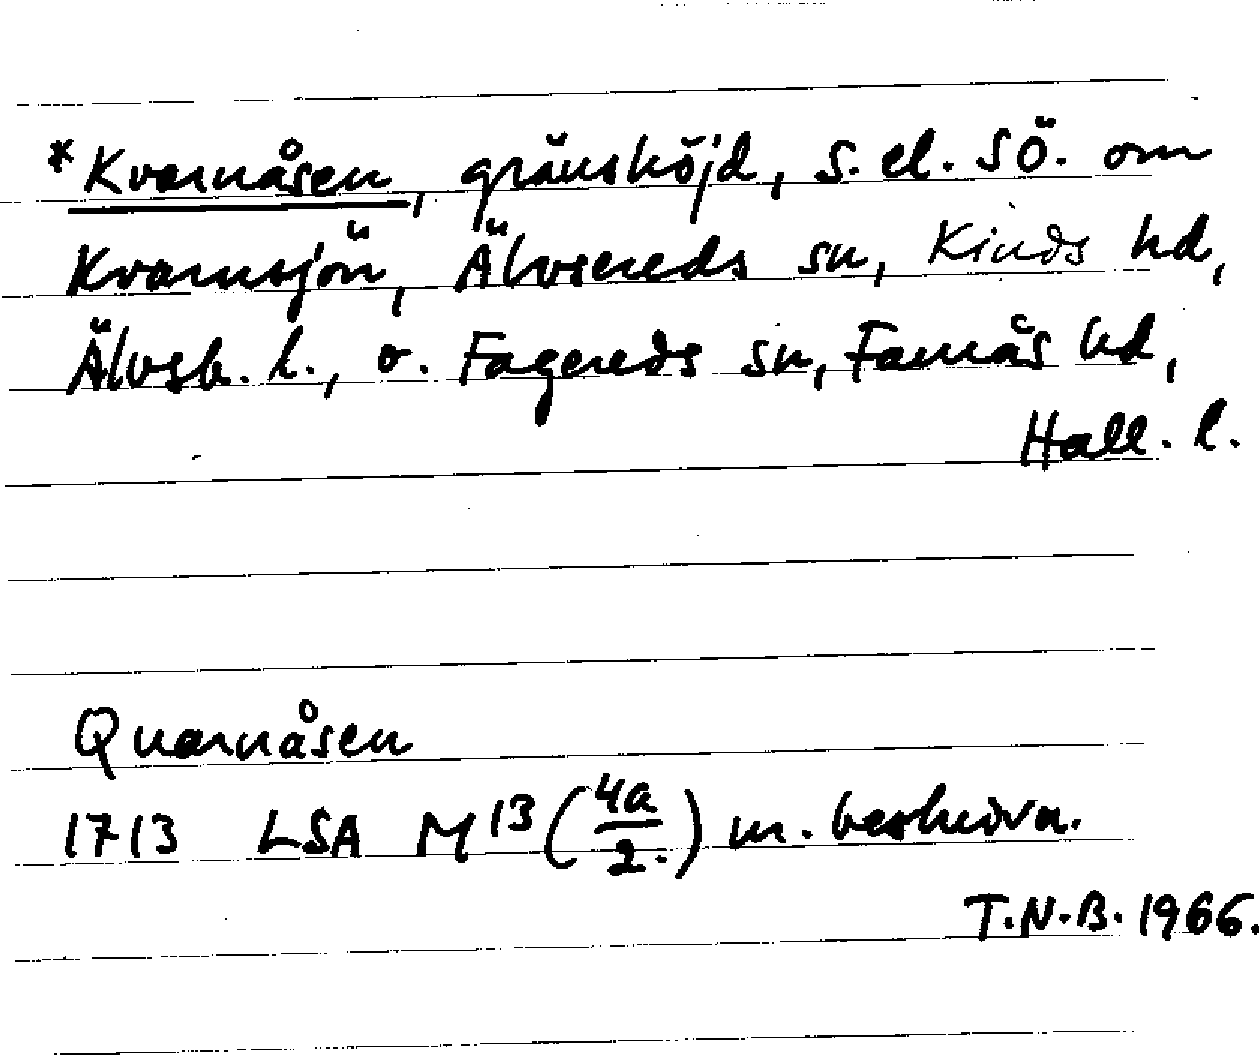 *Kvarnåsen, gränshöjd, S. el. SÖ. om
Kvarnsjön, Älvsereds sn, Kinds hd,
Älvsb. l., o. Fagereds sn, Faurås hd,
Hall. l.
Quarnåsen
1713 LSA M 13 (4a/2.) m. beskrivn.
T.N.B. 1966.